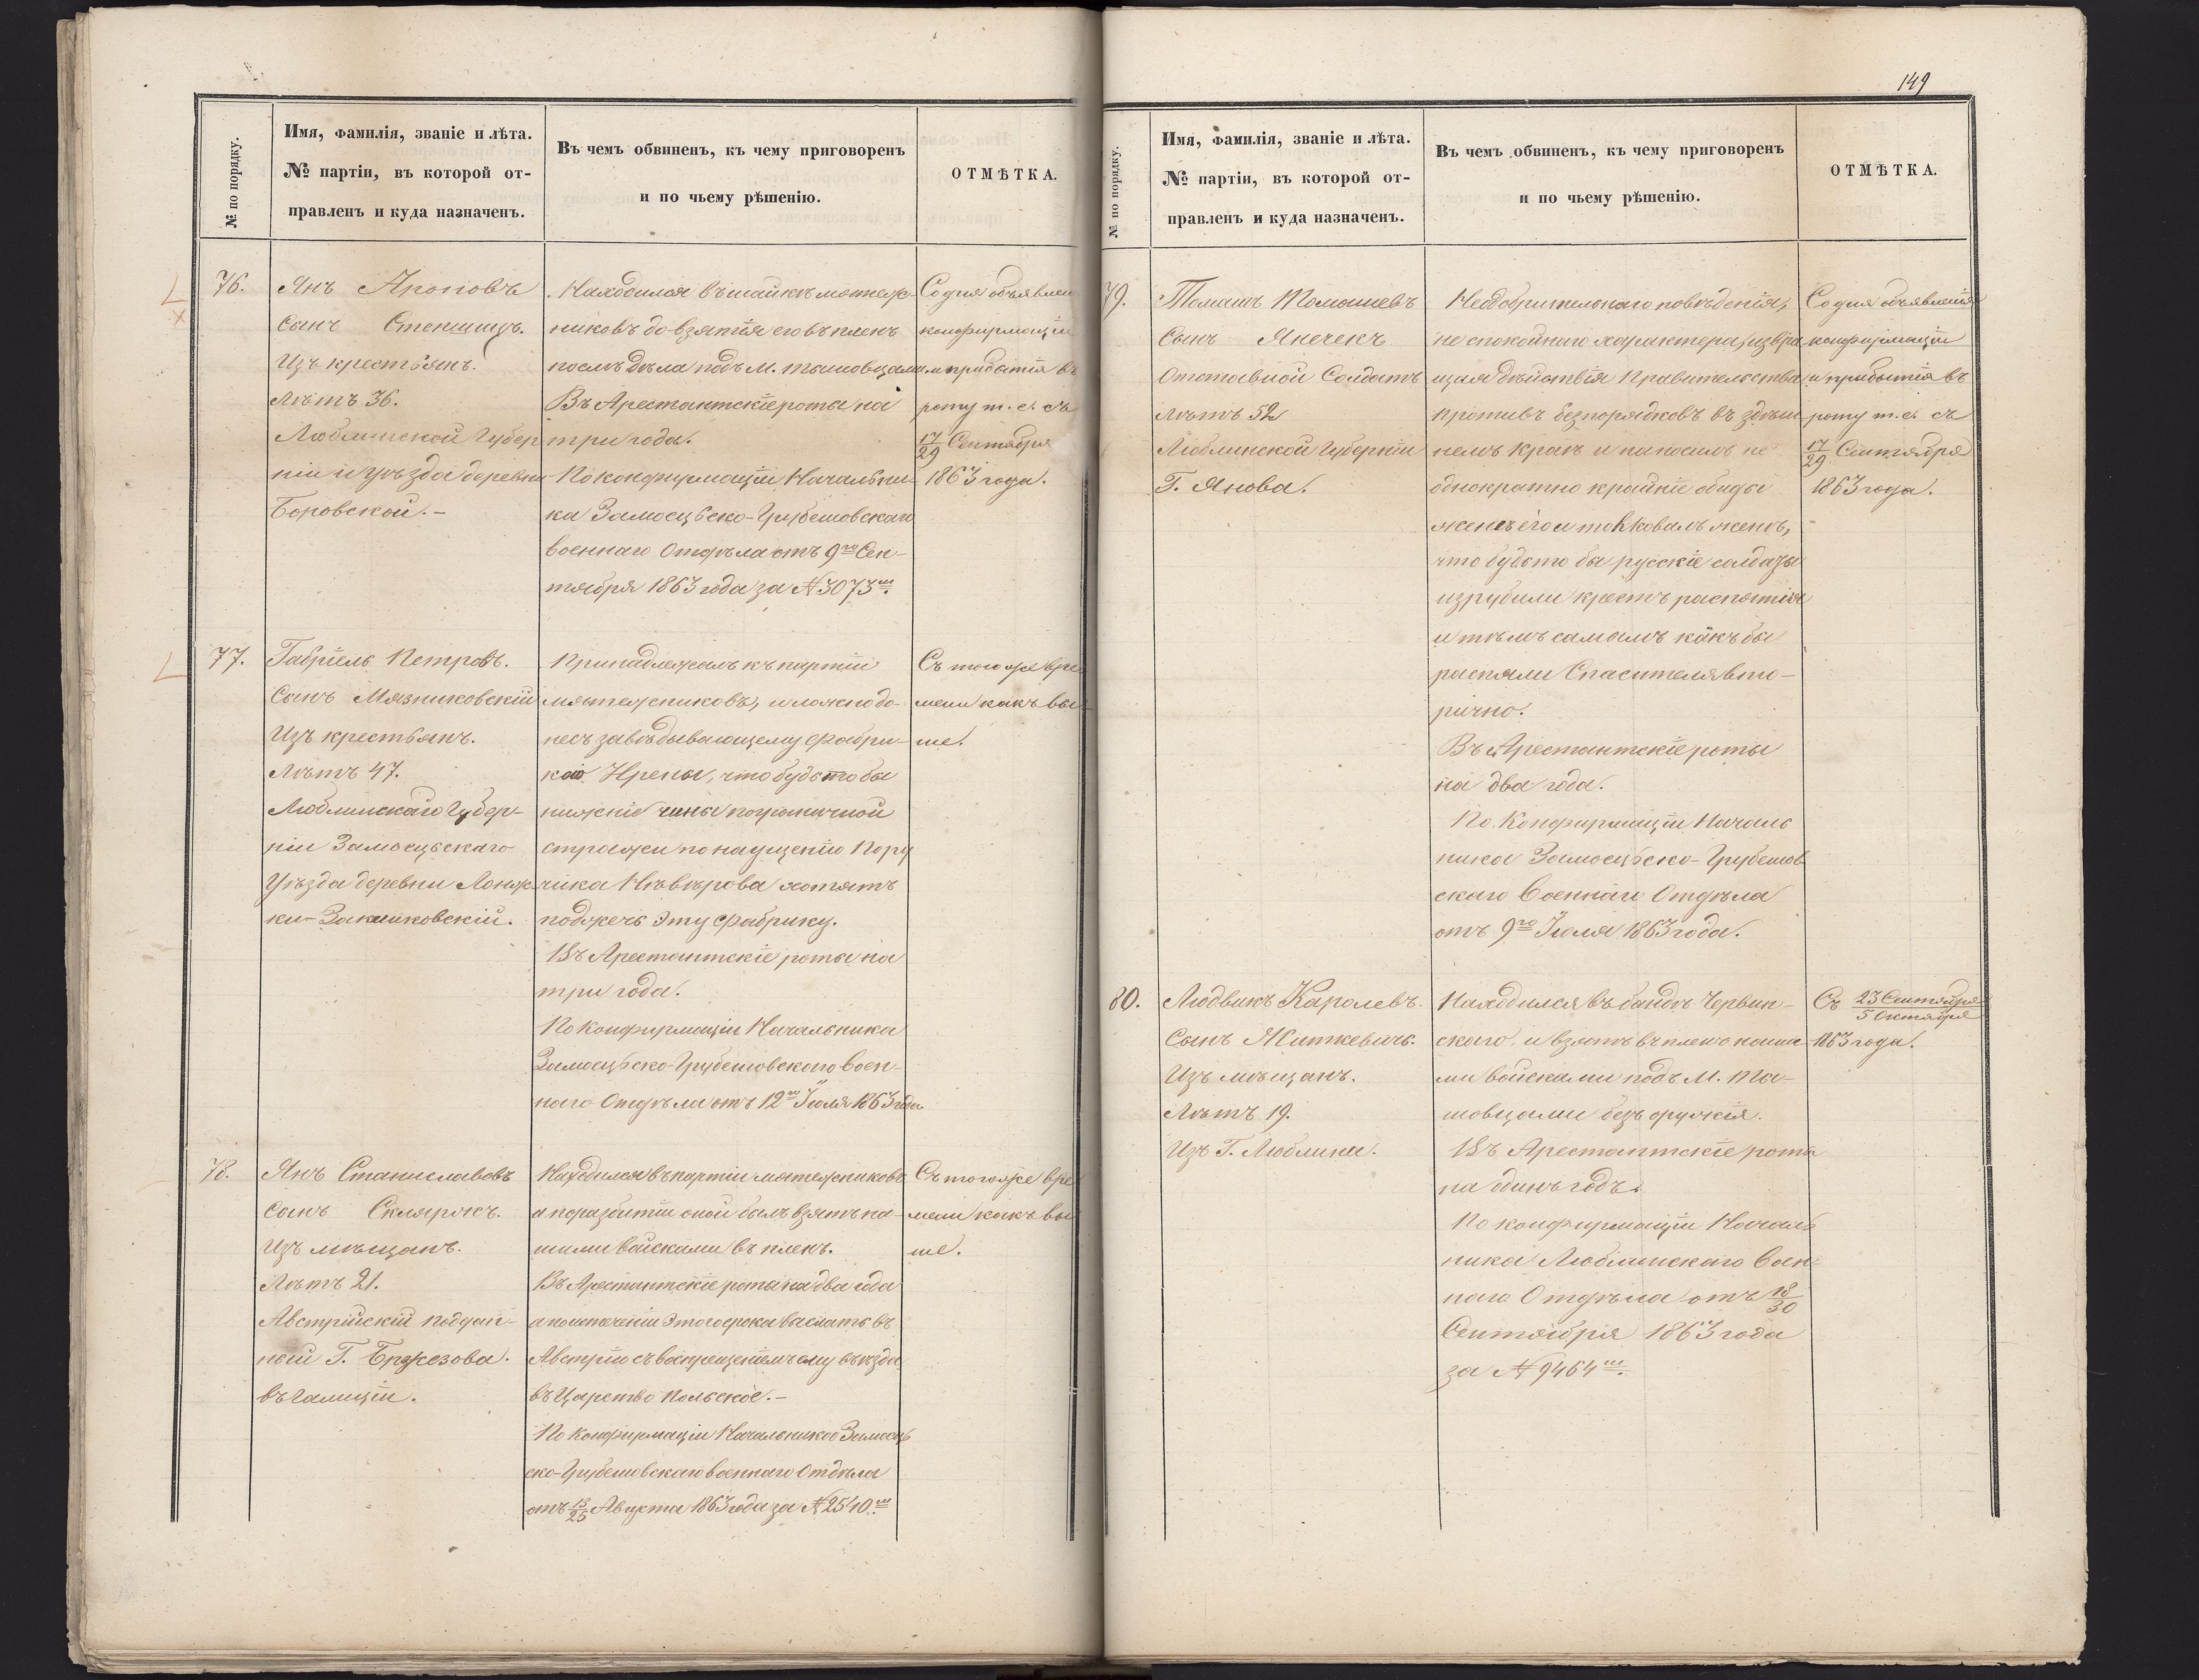 149
№ по порядку.
Имя, фамилія, званіе и лѣта.
№ партіи, въ которой от-
правленъ и куда назначенъ.
Въ чемъ обвиненъ, къ чему приговоренъ
и по чьему рѣшенію.
ОТМѢТКА.
76.
Янъ
сынъ
Изъ крестьянъ.
Лѣтъ 36.
Люблинской Губер
ніи и уѣзда деревни
Боровской.-
Находился въ шайкѣ мятеж-
никовъ до взятія его въ плѣнъ
послѣ дѣла подъ М.
Въ Арестантскіе роты на
три года.
По конфирмаціи Начальни-
ка Замосцьско-Грубешовскаго
военнаго Отдѣла отъ 9го Сен-
тября 1863 года за № 3073мъ.
Со дня объявлен
конфирмаціи
и прибытія въ
роту т. е. съ
17/29 Сентября
1863 года.
77.
Габріель Петровъ.
Сынъ Мязниковскій
Изъ крестьянъ.
Лѣтъ 47.
Люблинскаго Губер-
ніи Замосцьскаго
Уѣзда деревни
Принадлежалъ къ партіи
мятежниковъ, и ложно до-
несъ завѣдывающему фабри-
кою что будьто бы
нижніе чины пограничной
стражи по наущенію Пору
чика хотятъ
поджечь эту фабрику.
Въ Арестантскіе роты на
три года.
По конфирмаціи Начальника
Замосцьско-Грубешовскаго воен-
наго Отдѣла отъ 12го Іюля 1863 года
Съ того же вре
мени какъ вы
ше.
78.
Янъ Станиславовъ
сынъ Склярэкъ.
Изъ мѣщанъ.
Лѣтъ 21.
Австрійскій поддан-
ный Г. Бржезова.
въ Галиціи.
Находился въ партіи мятежниковъ
а по разбитіи оной былъ взятъ на-
шими войсками въ плѣнъ.
Въ Арестантскіе роты на два года
а по истеченіи этого срока выслать въ
Австрію съ воспрещеніемъ ему въѣзда
въ Царство Польское.-
По Конфирмаціи Начальника Замосць
ско-Грубешовскаго военнаго Отдѣла
отъ 13/25 Августа 1863 года за № 2540мъ
Съ того же вре
мени какъ вы
ше.
№ по порядку.
Имя, фамилія, званіе и лѣта.
№ партіи, въ которой от-
правленъ и куда назначенъ.
Въ чемъ обвиненъ, къ чему приговоренъ
и по чьему рѣшенію.
ОТМѢТКА.
79.
Томашъ Томашевъ
Сынъ Янечекъ
Отставной Солдатъ
Лѣтъ 52
Люблинской Губерніи
Г. Янова.
Неодобрительнаго поведенія,
не спокойнаго характера, извра
щая дѣйствія Правительства
противъ безпорядковъ въ здѣш
немъ Краѣ и наносилъ не
однократно крайніе обиды
женѣ его и толковалъ женѣ,
что будьто бы русскіе солдаты
изрубили крестъ распятія
и тѣмъ самымъ какъ бы
распяли Спасителя вто-
рично.
Въ Арестантскіе роты
на два года.
По Конфирмаціи Началь
ника Замосцьско-Грубешов
скаго Военнаго Отдѣла
отъ 9го Іюля 1863 года.
Со дня объявленія
конфирмаціи
и прибытія въ
роту т. е. съ
17/29 Сентября
1863 года.
80.
Людвикъ Каролевъ.
Сынъ Житкевичъ.
Изъ мѣщанъ.
Лѣтъ 19.
Изъ Г. Люблина.
Находился въ бандѣ Червин-
скаго, и взятъ въ плѣнъ наши
ми войсками подъ М.
безъ оружія.
Въ Арестантскіе роты
на одинъ годъ.
По конфирмаціи Началь
ника Люблинскаго Воен-
наго Отдѣла отъ 18/30
Сентября 1863 года
за № 9464мъ.
Съ 23 Сентября/5 Октября
1863 года.